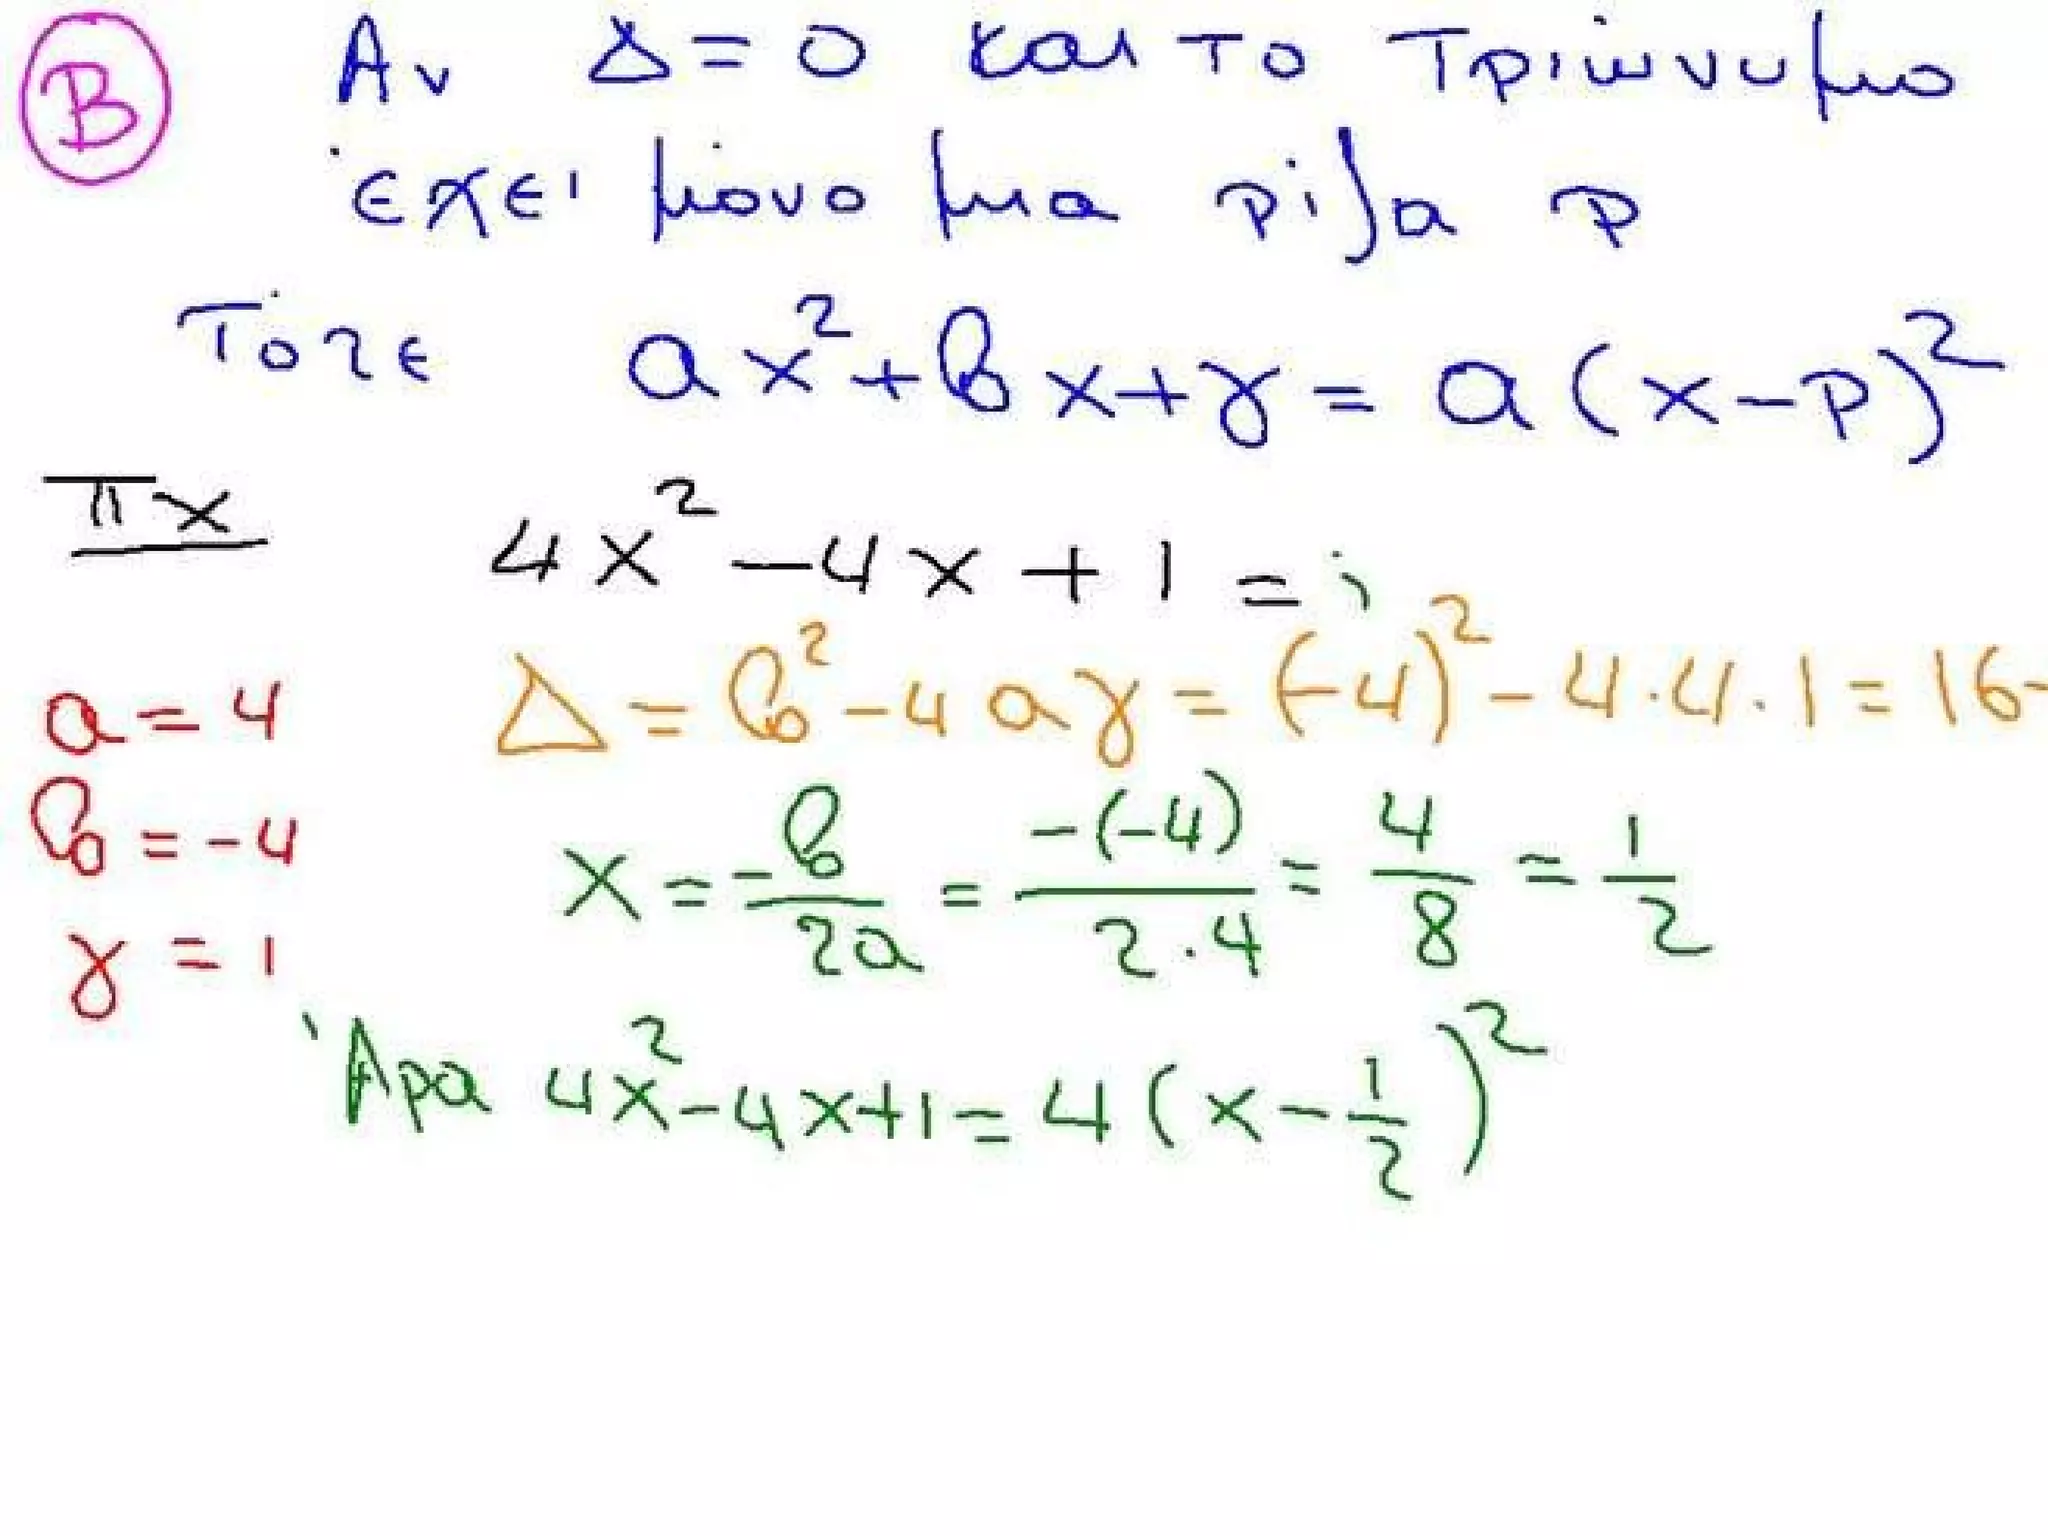 Β Αν Δ=0 και το τριώνυμο
έχει μόνο μια ρίζα ρ
Τότε αx²+βx+γ=α(x-ρ)²
Πχ 4x²-4x+1=;
α=4 Δ=β²-4αγ=(-4)²-4·4·1=16-
β=-4 x=-β/2α=-(-4)/2·4=4/8=1/2
γ=1
Άρα 4x²-4x+1=4(x-1/2)²